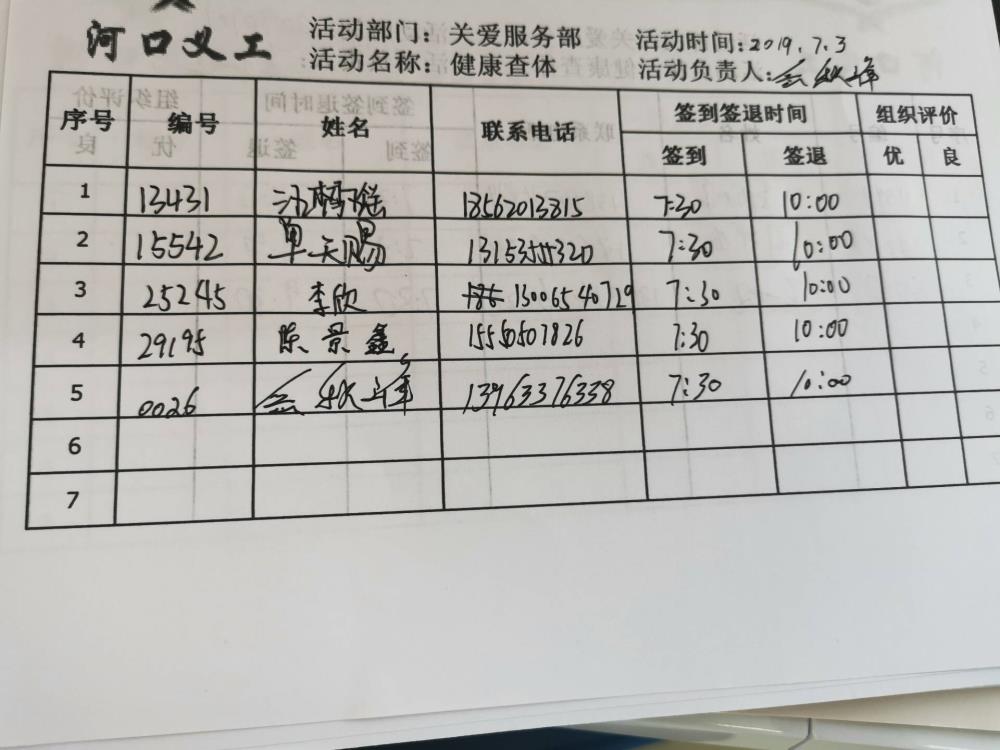 河口义工
活动部门：关爱服务部 活动时间：2019.7.3
活动名称：健康查体 活动负责人：
序号 编号 姓名 联系电话 签到签退时间 组织评价
签到 签退 优 良
1 13431 18562013815 7:30 10:00
2 15542 单天赐 7:30 10:00
3 25245 李欣 13006540729 7:30 10:00
4 29195 陈景鑫 15550507826 7:30 10:00
5 0026 13963376338 7:30 10:00
6
7